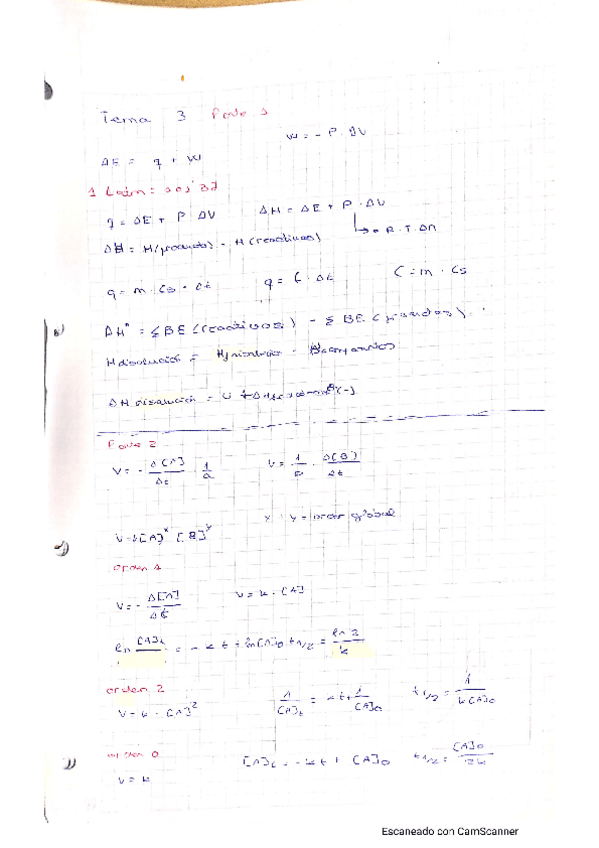 Tema 3 Parte 1
W = - P · ΔV
ΔE = q + W
q = ΔE + P · ΔV ΔH = ΔE + P · ΔV
→ R · T · Δn
ΔH = H(productos) - H(reactivos)
q = m · Cs · Δt q = C · Δt C = m · Cs
ΔH° = ΣBE (reactivos) - ΣBE (
H disolución =
ΔH disolución = U +
Parte 2
V = - Δ[A]/Δt · 1/a V = 1/ · Δ[B]/Δt
V = k[A]^x [B]^y x + y = orden global
orden 1
V = - Δ[A]/Δt V = k · [A]
ln [A]t = - k t + ln[A]0 t1/2 = ln 2/k
orden 2
V = k · [A]^2 1/[A]t = kt + 1/[A]0 t1/2 = 1/k[A]0
orden 0
[A]t = - kt + [A]0 t1/2 = [A]0/2k
V = k
Escaneado con CamScanner